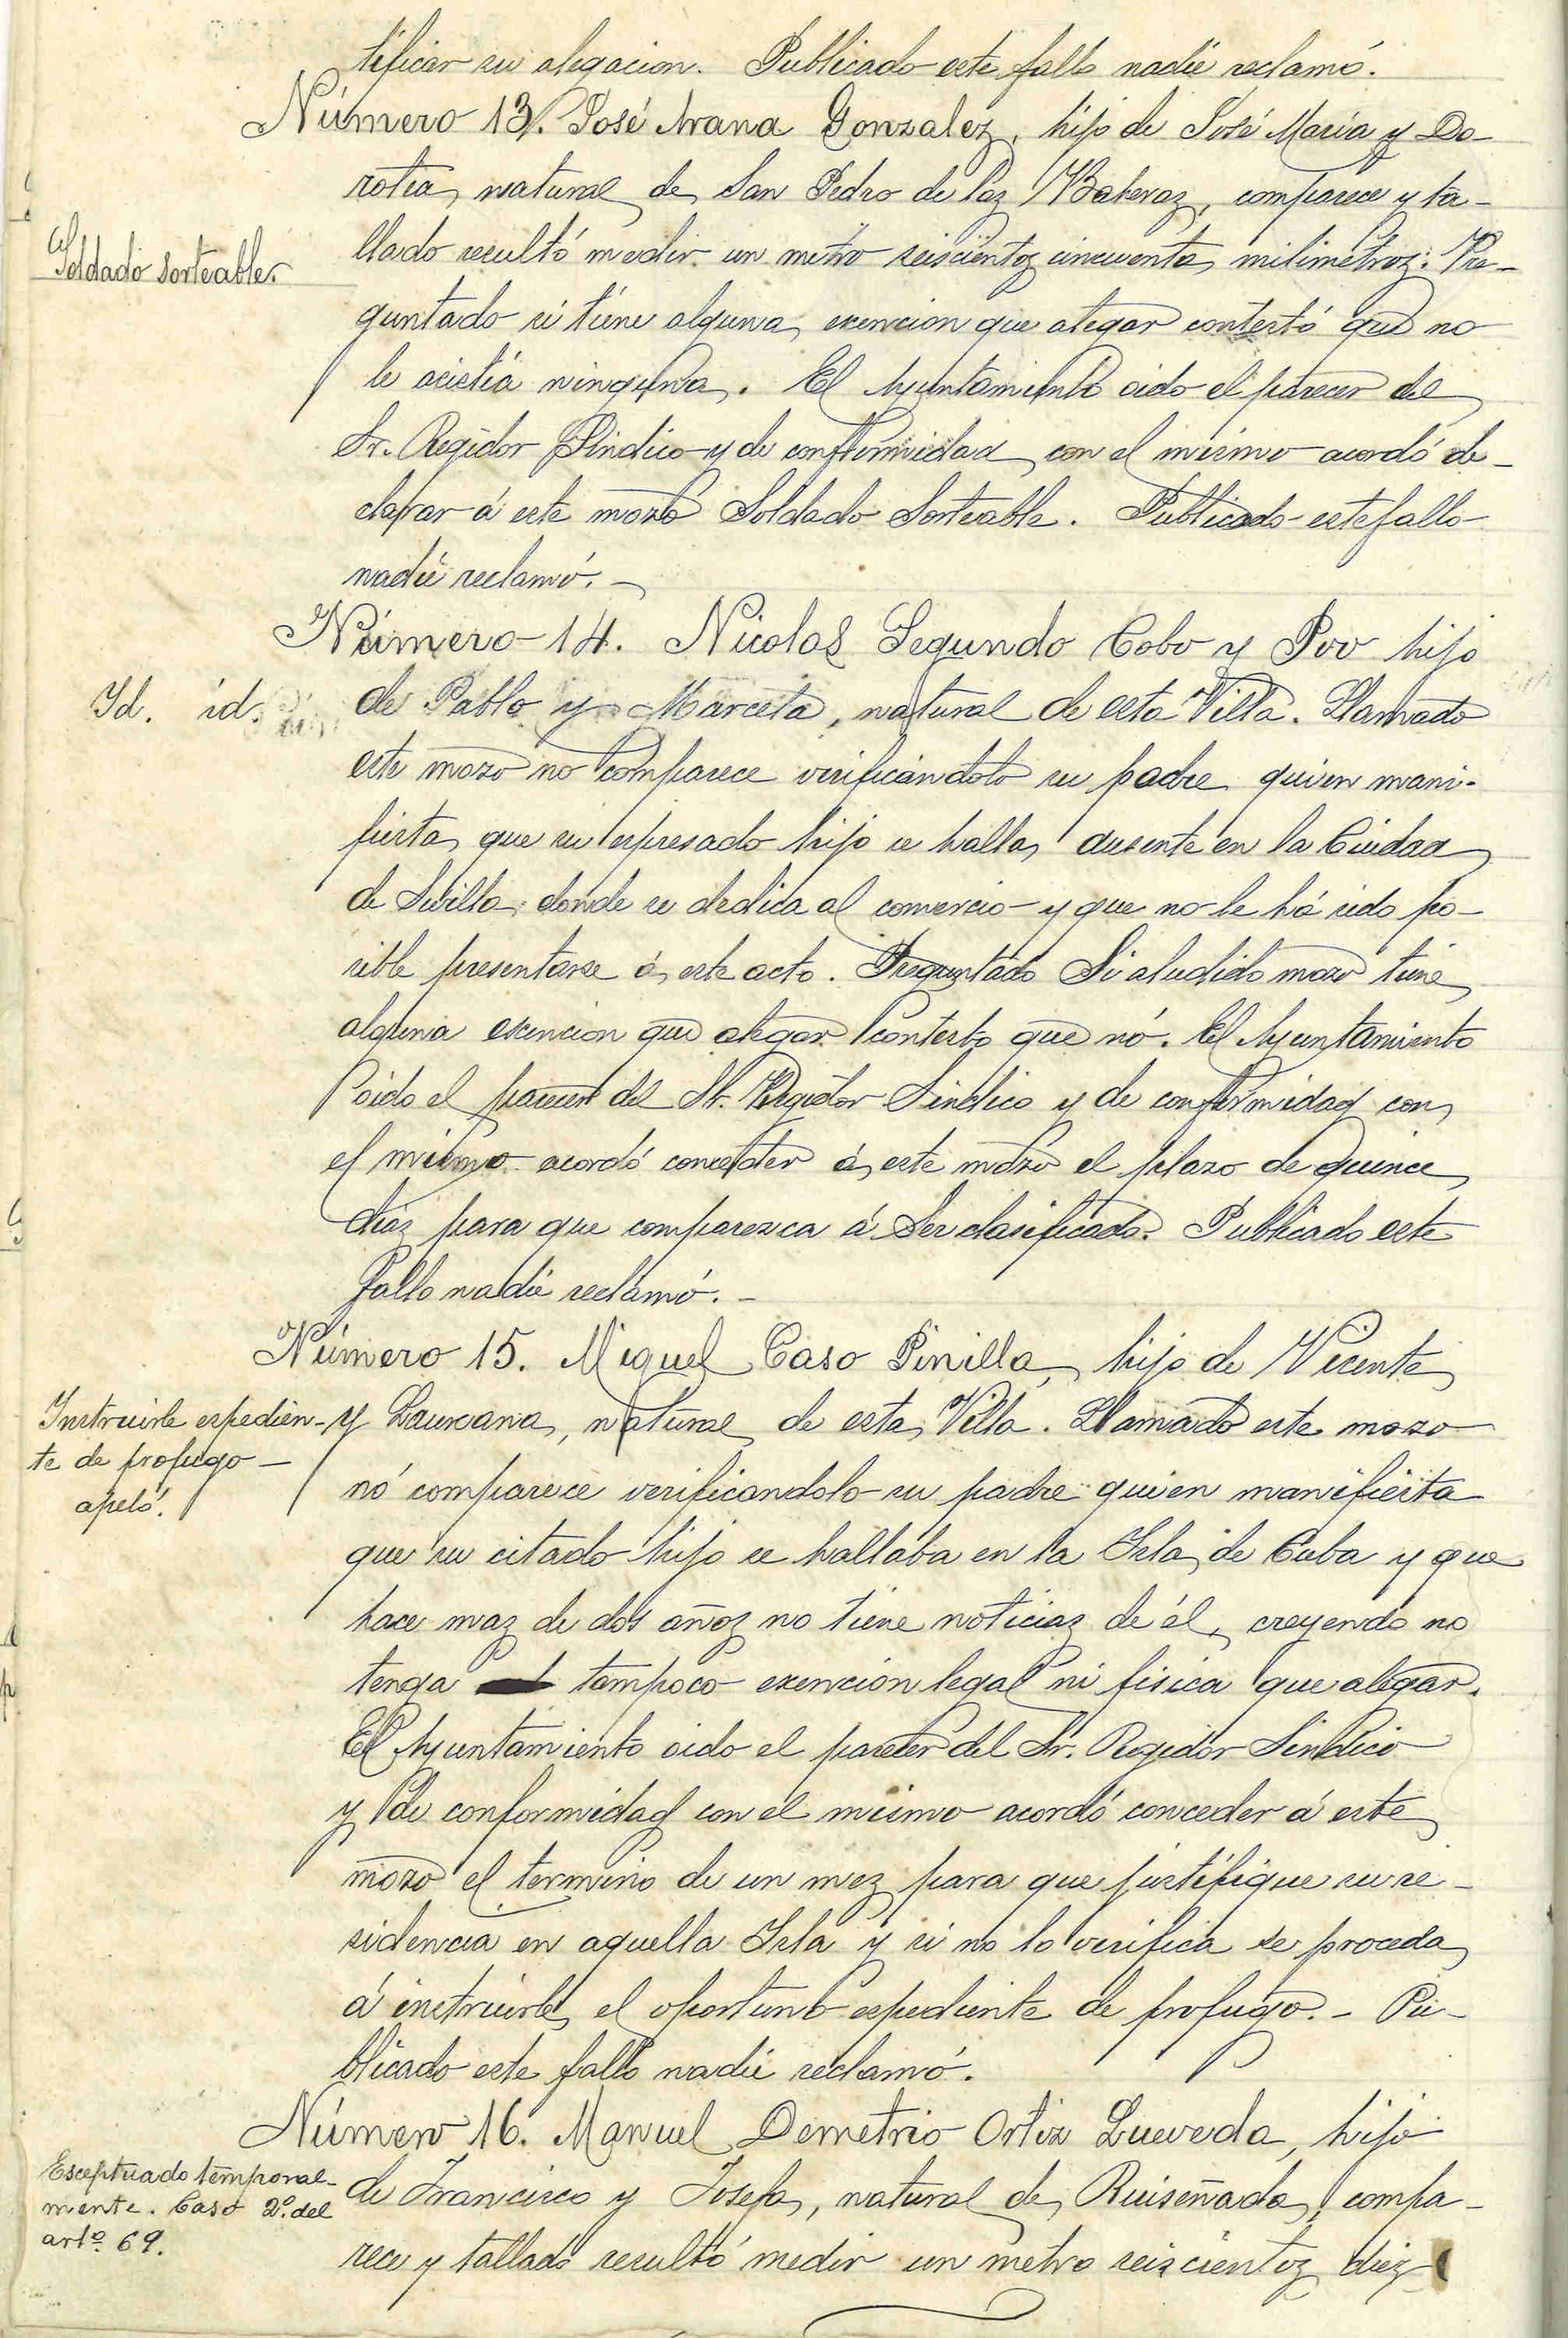 tificar su alegacion. Publicado este fallo nadie reclamó.
Número 13. José Arana Gonzalez, hijo de José María y Do-
rotea, natural de San Pedro de laz Baheraz, comparece y ta-
Soldado sorteable.
llado resultó medir un metro seiscientoz cincuenta milimetroz. Pre-
guntado si tiene alguna exencion que alegar contestó que no
le asistia ninguna. El Ayuntamiento oido el parecer del
Sr. Regidor Sindico y de conformidad con el mismo acordó de-
clarar á este mozo Soldado Sorteable. Publicado este fallo
nadie reclamó.-
Número 14. Nicolas Segundo Cobo y Poo hijo
Id. id.
de Pablo y Marcela, natural de esta Villa. Llamado
este mozo no comparece verificándolo su padre quien mani-
fiesta que su espresado hijo se halla ausente en la Ciudad
de Sevilla donde se dedica al comercio y que no le há sido po-
sible presentarse á este acto. Preguntado Si aludido mozo tiene
alguna esencion que alegar contesto que nó. El Ayuntamiento
oido el parecer del Sr. Regidor Sindico y de conformidad con
el mismo acordó conceder á este mozo el plazo de quince
diaz para que comparezca á Ser clasificado. Publicado este
fallo nadie reclamó.-
Número 15. Miguel Caso Pinilla, hijo de Vicente
Instruirle espedien-
te de profugo-
apeló.
y Laureana, natural de esta Villa. Llamado este mozo
nó comparece verificandolo su padre quien manifiesta
que su citado hijo se hallaba en la Isla de Cuba y que
hace maz de dos añoz no tiene noticiaz de él, creyendo no
tenga tampoco exencion legal ni fisica que alegar.
El Ayuntamiento oido el parecer del Sr. Regidor Sindico
y de conformidad con el mismo acordó conceder á este
mozo el termino de un mez para que justifique su re-
sidencia en aquella Isla y si no lo verifica se proceda
á instruirle el oportuno espediente de profugo.- Pu-
blicado este fallo nadie reclamó.
Número 16. Manuel Demetrio Ortiz Queveda, hijo
Esceptuado temporal-
mente. Caso 2º. del
artº. 69.
de Francisco y Josefa, natural de Ruiseñada, compa-
rece y tallado resultó medir un metro seiscientoz diez